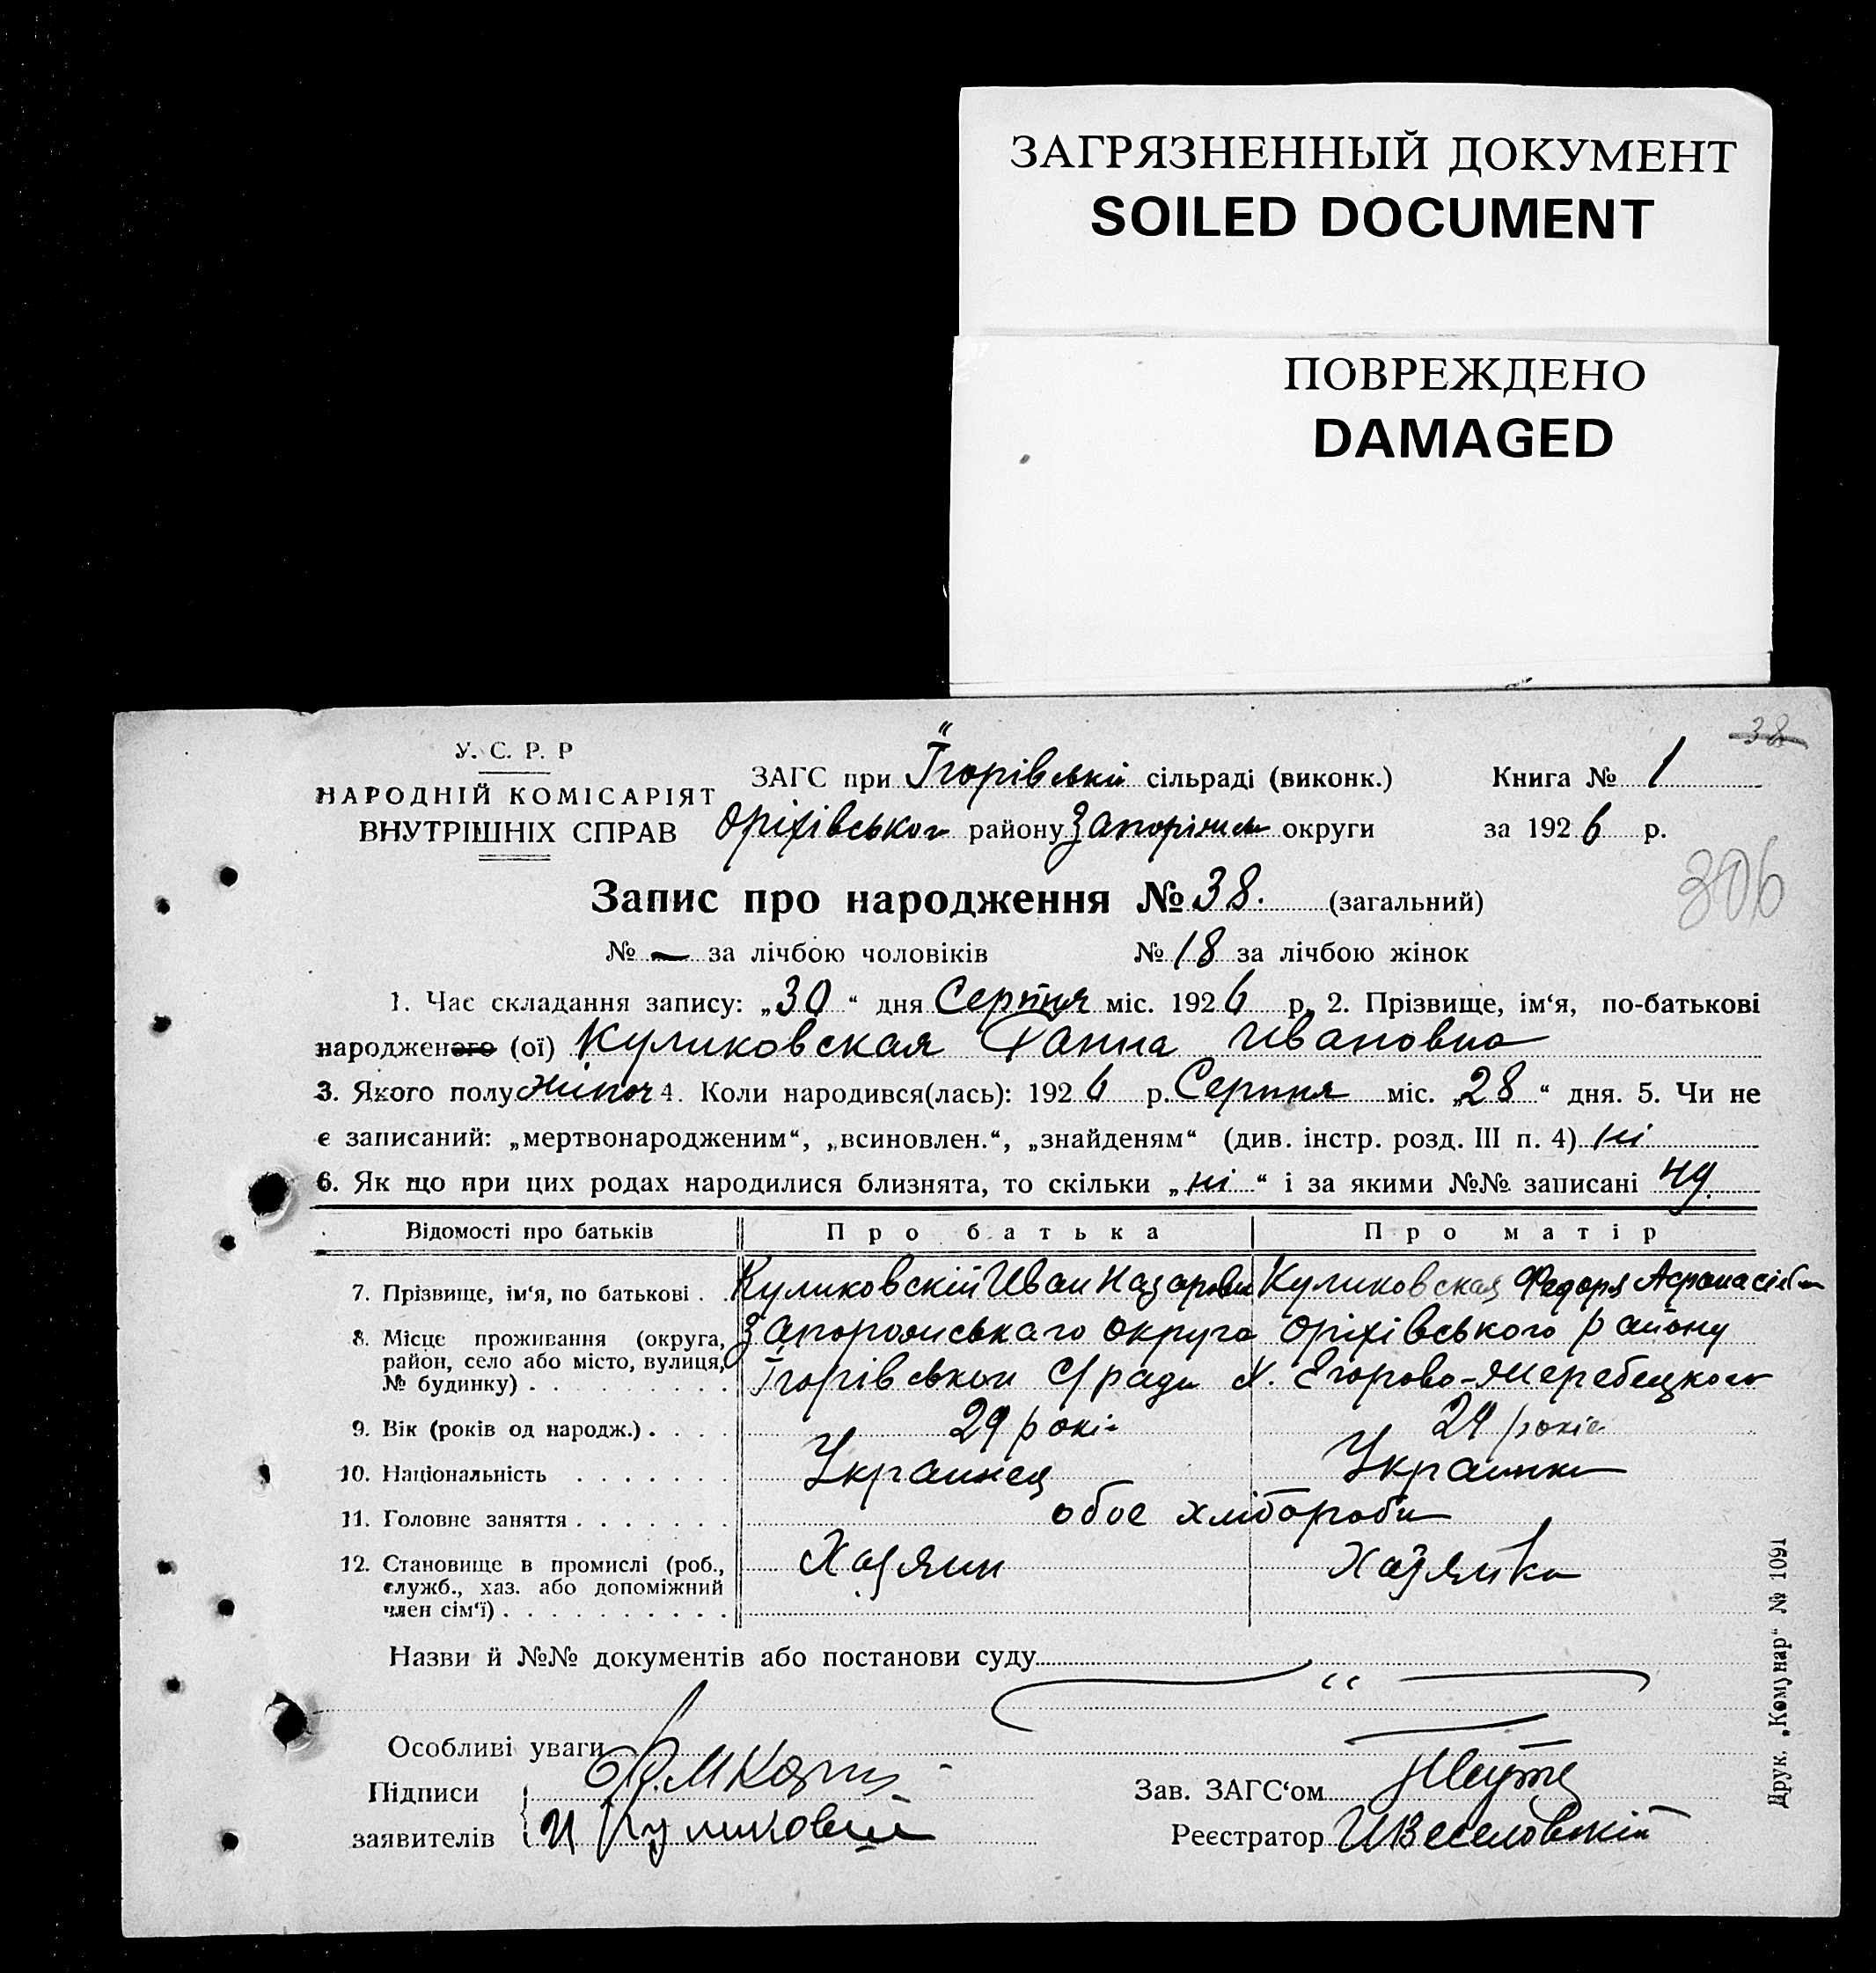 ЗАГРЯЗНЕННЫЙ ДОКУМЕНТ
SOILED DOCUMENT
ПОВРЕЖДЕНО
DAMAGED
38
У. С. Р. Р
НАРОДНІЙ КОМІСАРІЯТ
ВНУТРІШНІХ СПРАВ
ЗАГС при Їгорівській сільраді (виконк.) Книга № 1
Оріхівського району Запоріжськ округи за 1926 р.
306
Запис про народження № 38. (загальний)
№ — за лічбою чоловіків № 18 за лічбою жінок
1. Час складання запису: „30“ дня Серпня міс. 1926 р. 2. Прізвище, ім‘я, по-батькові
народженого (ої) Куликовская Ганна Ивановна
3. Якого полу жіноч 4. Коли народився(лась): 1926 р. Серпня міс. „28“ дня. 5. Чи не
є записаний: „мертвонародженим“, „всиновлен.“, „знайденям“ (див. інстр. розд. III п. 4) ні
6. Як що при цих родах народилися близнята, то скільки „ні“ і за якими №№ записані
Відомості про батьків Про батька Про матір
7. Прізвище, ім‘я, по батькові . . Куликовскій Иван Назарови Куликовская Федора Афанасіївн
8. Місце проживання (округа, район, село або місто, вулиця, № будинку) . . . . . . . . . Запорожськаго округа Оріхівського району
Їгорівськои С/ради х. Егорово-Жеребецкого
9. Вік (років од народж.) . . . . 29 рокі 29 років
10. Національність . . . . . . . Украинец Украинка
11. Головне заняття . . . . . . . обое хлібороби
12. Становище в промислі (роб., служб., хаз. або допоміжний член сім‘ї) . . . . . . . . . . Хазяин Хазяйка
Назви й №№ документів або постанови суду
Особливі уваги
Підписи
заявителів И Куликовский
Зав. ЗАГС‘ом
Реєстратор И Веселовский
Друк. „Комунар“ № 1091